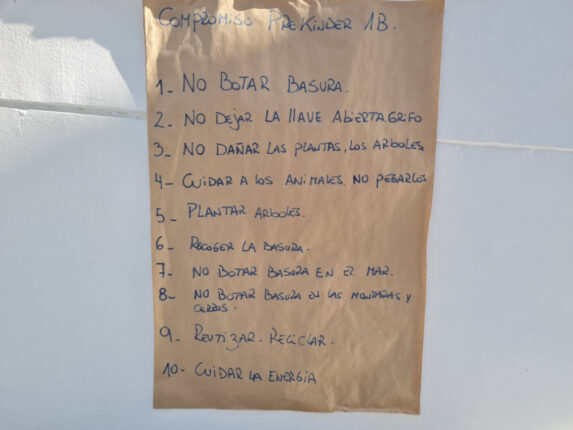 COMPROMISO PREKINDER 1B.
1- NO BOTAR BASURA.
2- NO DEJAR LA LLAVE ABIERTA GRIFO
3- NO DAÑAR LAS PLANTAS, LOS ARBOLES
4- CUIDAR A LOS ANIMALES. NO PEGARLES
5- PLANTAR ARBOLES.
6- RECOGER LA BASURA.
7- NO BOTAR BASURA EN EL MAR.
8- NO BOTAR BASURA EN LAS MONTAÑAS Y
CERROS.
9- REUTIZAR. RECICLAR.
10- CUIDAR LA ENERGIA